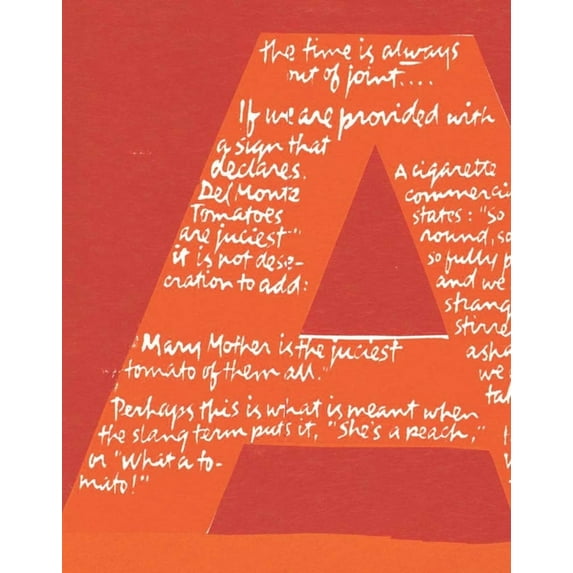 the time is always
out of joint....
If we are provided with
a sign that
declares.
Del Monte
Tomatoes
are juciest"
it is not dese-
cration to add:
"Mary Mother is the juciest
tomato of them all."
Perhaps this is what is meant when
the slang term puts it, "She's a peach,"
or "What a to-
mato!"
A cigarette
commerci
states: "So
round, so
so fully p
and we
strang
stirre
asha
we s
tal